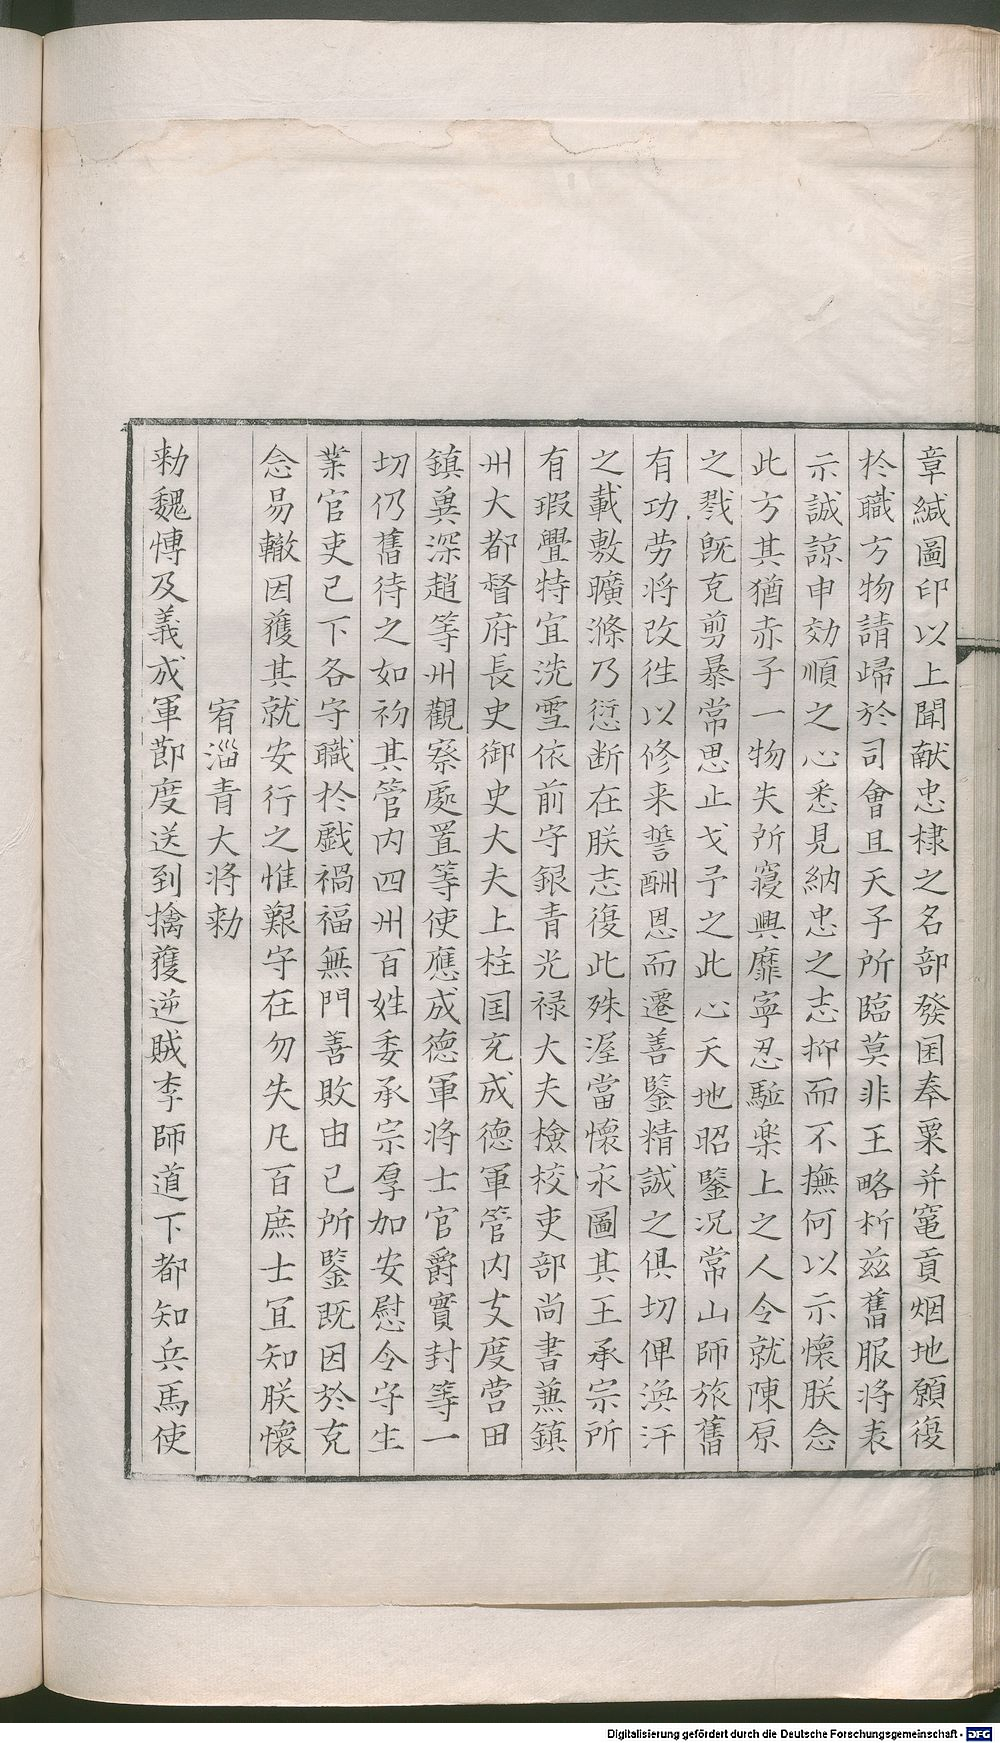 章緘圖印以上聞献忠棣之名部發囷奉粟并竃貢烟地願復
扵職方物請歸扵司會且天子所臨莫非王略析兹舊服将表
示誠諒申効順之心悉見納忠之志抑而不撫何以示懷朕念
此方其猶赤子一物失所寢興靡寧忍駈楽上之人令就陳原
之戮既克剪暴常思止戈予之此心天地昭鑒况常山師旅舊
有功劳将改徃以修来誓酬恩而遷善鑒精誠之俱切俾渙汗
之載敷曠滌乃愆断在朕志復此殊渥當懷永圖其王承宗所
有瑕舋特宜洗雪依前守銀青光禄大夫檢校吏部尚書兼鎮
州大都督府長史御史大夫上柱国充成德軍管内支度营田
鎮兾深趙等州觀察處置等使應成德軍将士官爵實封等一
切仍舊待之如初其管内四州百姓委承宗厚加安慰令守生
業官吏已下各守職扵戯禍福無門善敗由己所鑒既因於克
念易轍因獲其就安行之惟艱守在勿失凡百庶士宜知朕懷
宥淄青大将勑
勑魏愽及義成軍節度送到擒獲逆賊李師道下都知兵馬使
Digitalisierung gefördert durch die Deutsche Forschungsgemeinschaft - DFG